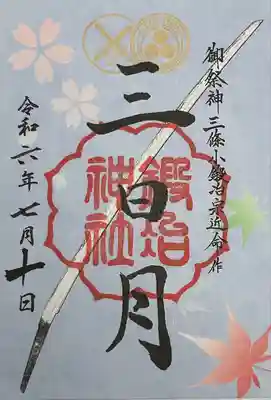 御祭神 三條小鍛冶宗近命作
三日月
鍛冶
神社
令和六年七月十日